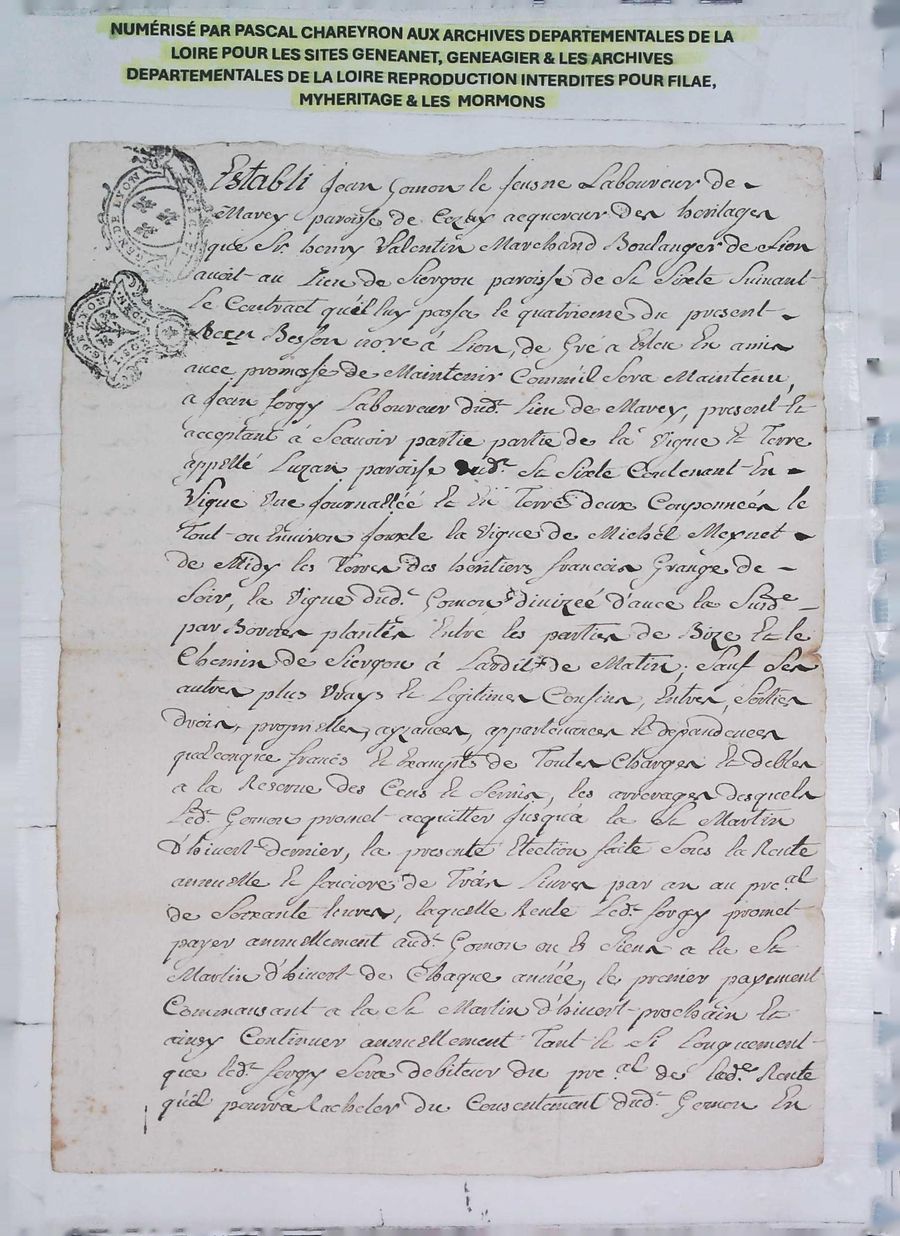 NUMÉRISÉ PAR PASCAL CHAREYRON AUX ARCHIVES DEPARTEMENTALES DE LA
LOIRE POUR LES SITES GENEANET, GENEAGIER & LES ARCHIVES
DEPARTEMENTALES DE LA LOIRE REPRODUCTION INTERDITES POUR FILAE,
MYHERITAGE & LES MORMONS
Establi Jean Gomon le Jeusne Laboureur de
Marey paroisse de acquereur des heritages
que Sr. henry Valentin Marchand Boulanger de Lion
avoit au Lieu de Siergou paroisse de St Sixte Suivant
Le Contract qu'il luy passa le quatrieme du present
Besson nore à Lion, de Gré a Esleu En amis
avec promesse de Maintenir Comm'il Sera Maintenu,
a Jean forgy Laboureur dudt. Lieu de Marey, present Et
acceptant à Scavoir partie partie de la Vigne Et Terre
appellé Luzan paroisse dudt. St Sixte Contenant En
Vigne Une Journalléé Et En Terre deux Couponnées le
Tout ou Environ Jouxte la Vigne de Michel Meynet
de Midy les Terres des heritiers francois Grange de
Soir, la Vigne dudt. Gomon divizeé d'avec la Susde
par Bornes plantés Entre les parties de Bize Et le
Chemin de Siergou à de Matin, Sauf Ses
autres plus Vrays Et Legitimes Confins, Entrés, Sorties
drois, proprietés, ayzances, appartenances Et dépandences
quelconque francs Et Exampts de Toutes Charges Et debtes
a la Reserve des Cens Et Servis, les arrerages desquels
Ledt. Gomon promet acquitter Jusqu'à la St Martin
d'hivert dernier, la presente Election faite Sous la Rente
annuelle Et fonciere de Trois Livres par an au pre.al
de Soixante livres, laquelle Rente Ledt. forgy promet
payer annuellement audt. Gomon ou Es Siens a la St
Martin d'hivert de Chaque année, le premier payement
Commansant a la St Martin d'hivert prochain Et
ainsy Continuer annuellement Tant Et Si Longuement
que ledt. forgy Sera debiteur du pre.al de lade. Rente
qu'il pourra Racheter du Consentement dudt. Gomon En